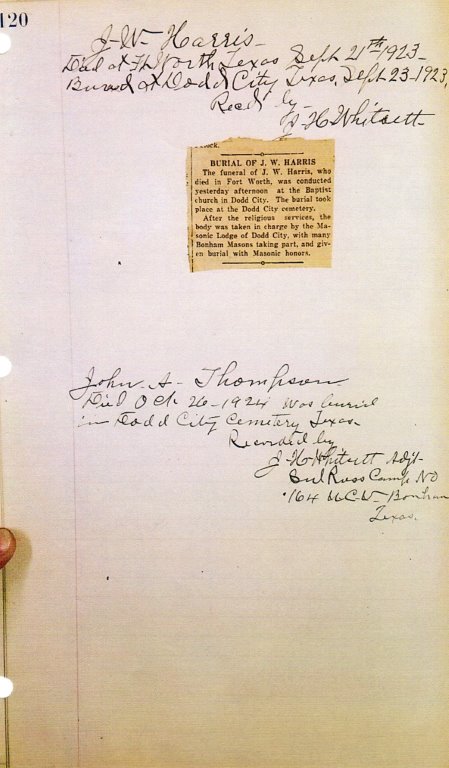 120
J-W- Harris-
Died at Ft Worth, Texas Sept 21th 1923-
Buried at Dodd City Texas, Sept 23-1923,
Recd by-
J-H Whitsett-
BURIAL OF J. W. HARRIS
The funeral of J. W. Harris, who
died in Fort Worth, was conducted
yesterday afternoon at the Baptist
church in Dodd City. The burial took
place at the Dodd City cemetery.
After the religious services, the
body was taken in charge by the Ma-
sonic Lodge of Dodd City, with many
Bonham Masons taking part, and giv-
en burial with Masonic honors.
John A- Thompson-
Died Oct- 26-1924 was buried
in Dodd City Cemetery Texas-
Recorded by
J-H Whitsett Adjt-
Sul Ross Camp No
164 U-C-V- Bonham
Texas.